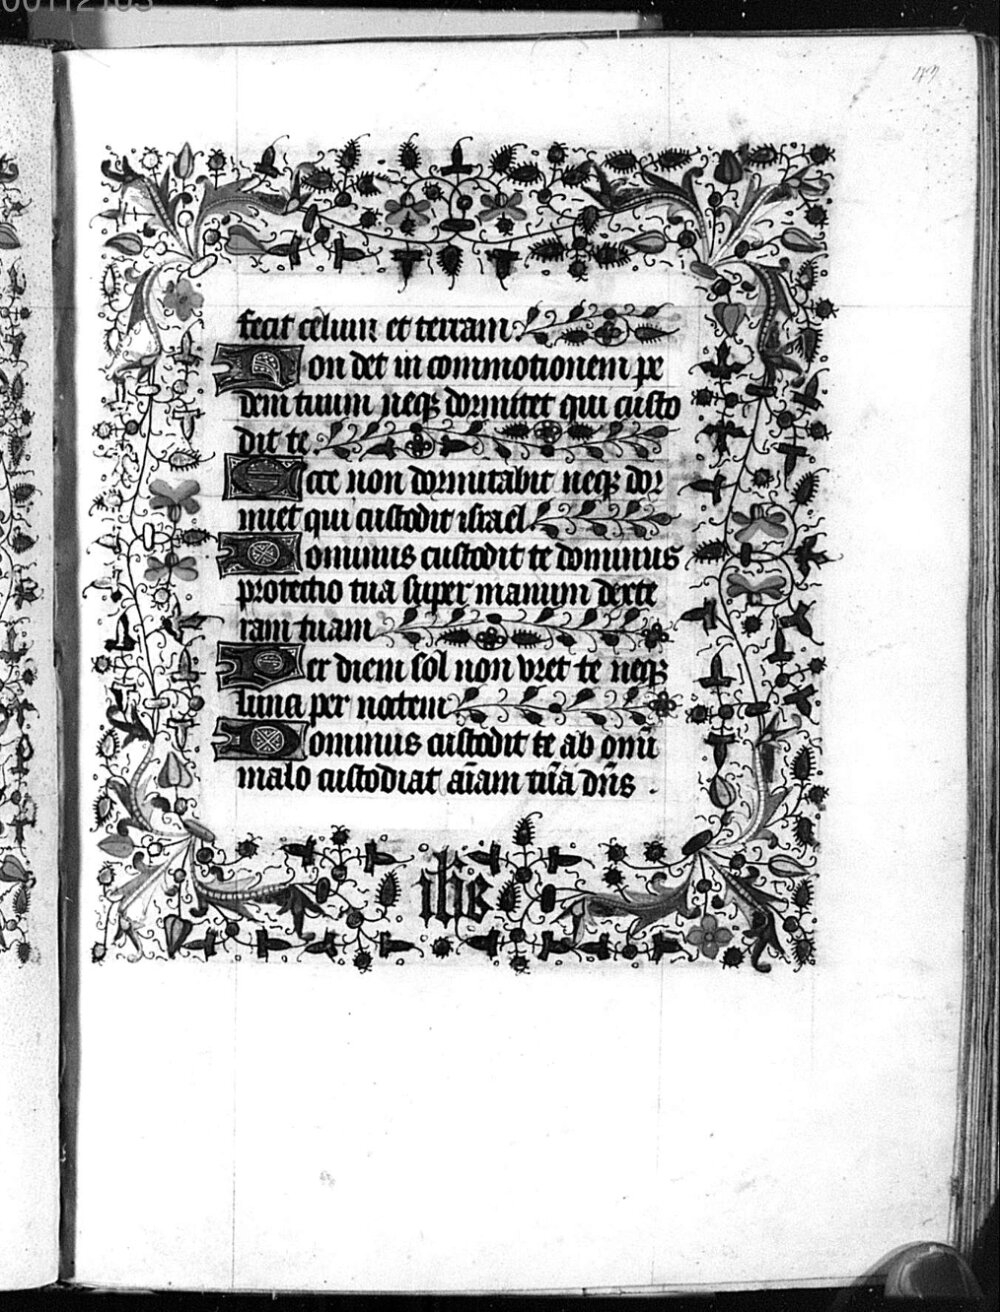 00112103
fecit celum et terram.
Non det in commotionem pe
dem tuum neqꝫ dormitet qui custo
dit te.
Ecce non dormitabit neqꝫ dor
miet qui custodit israel.
Dominus custodit te dominus
protectio tua super manum dexte
ram tuam
Per diem sol non vret te neqꝫ
luna per noctem
Dominus custodit te ab om̄i
malo custodiat aīam tuā dn̄s .